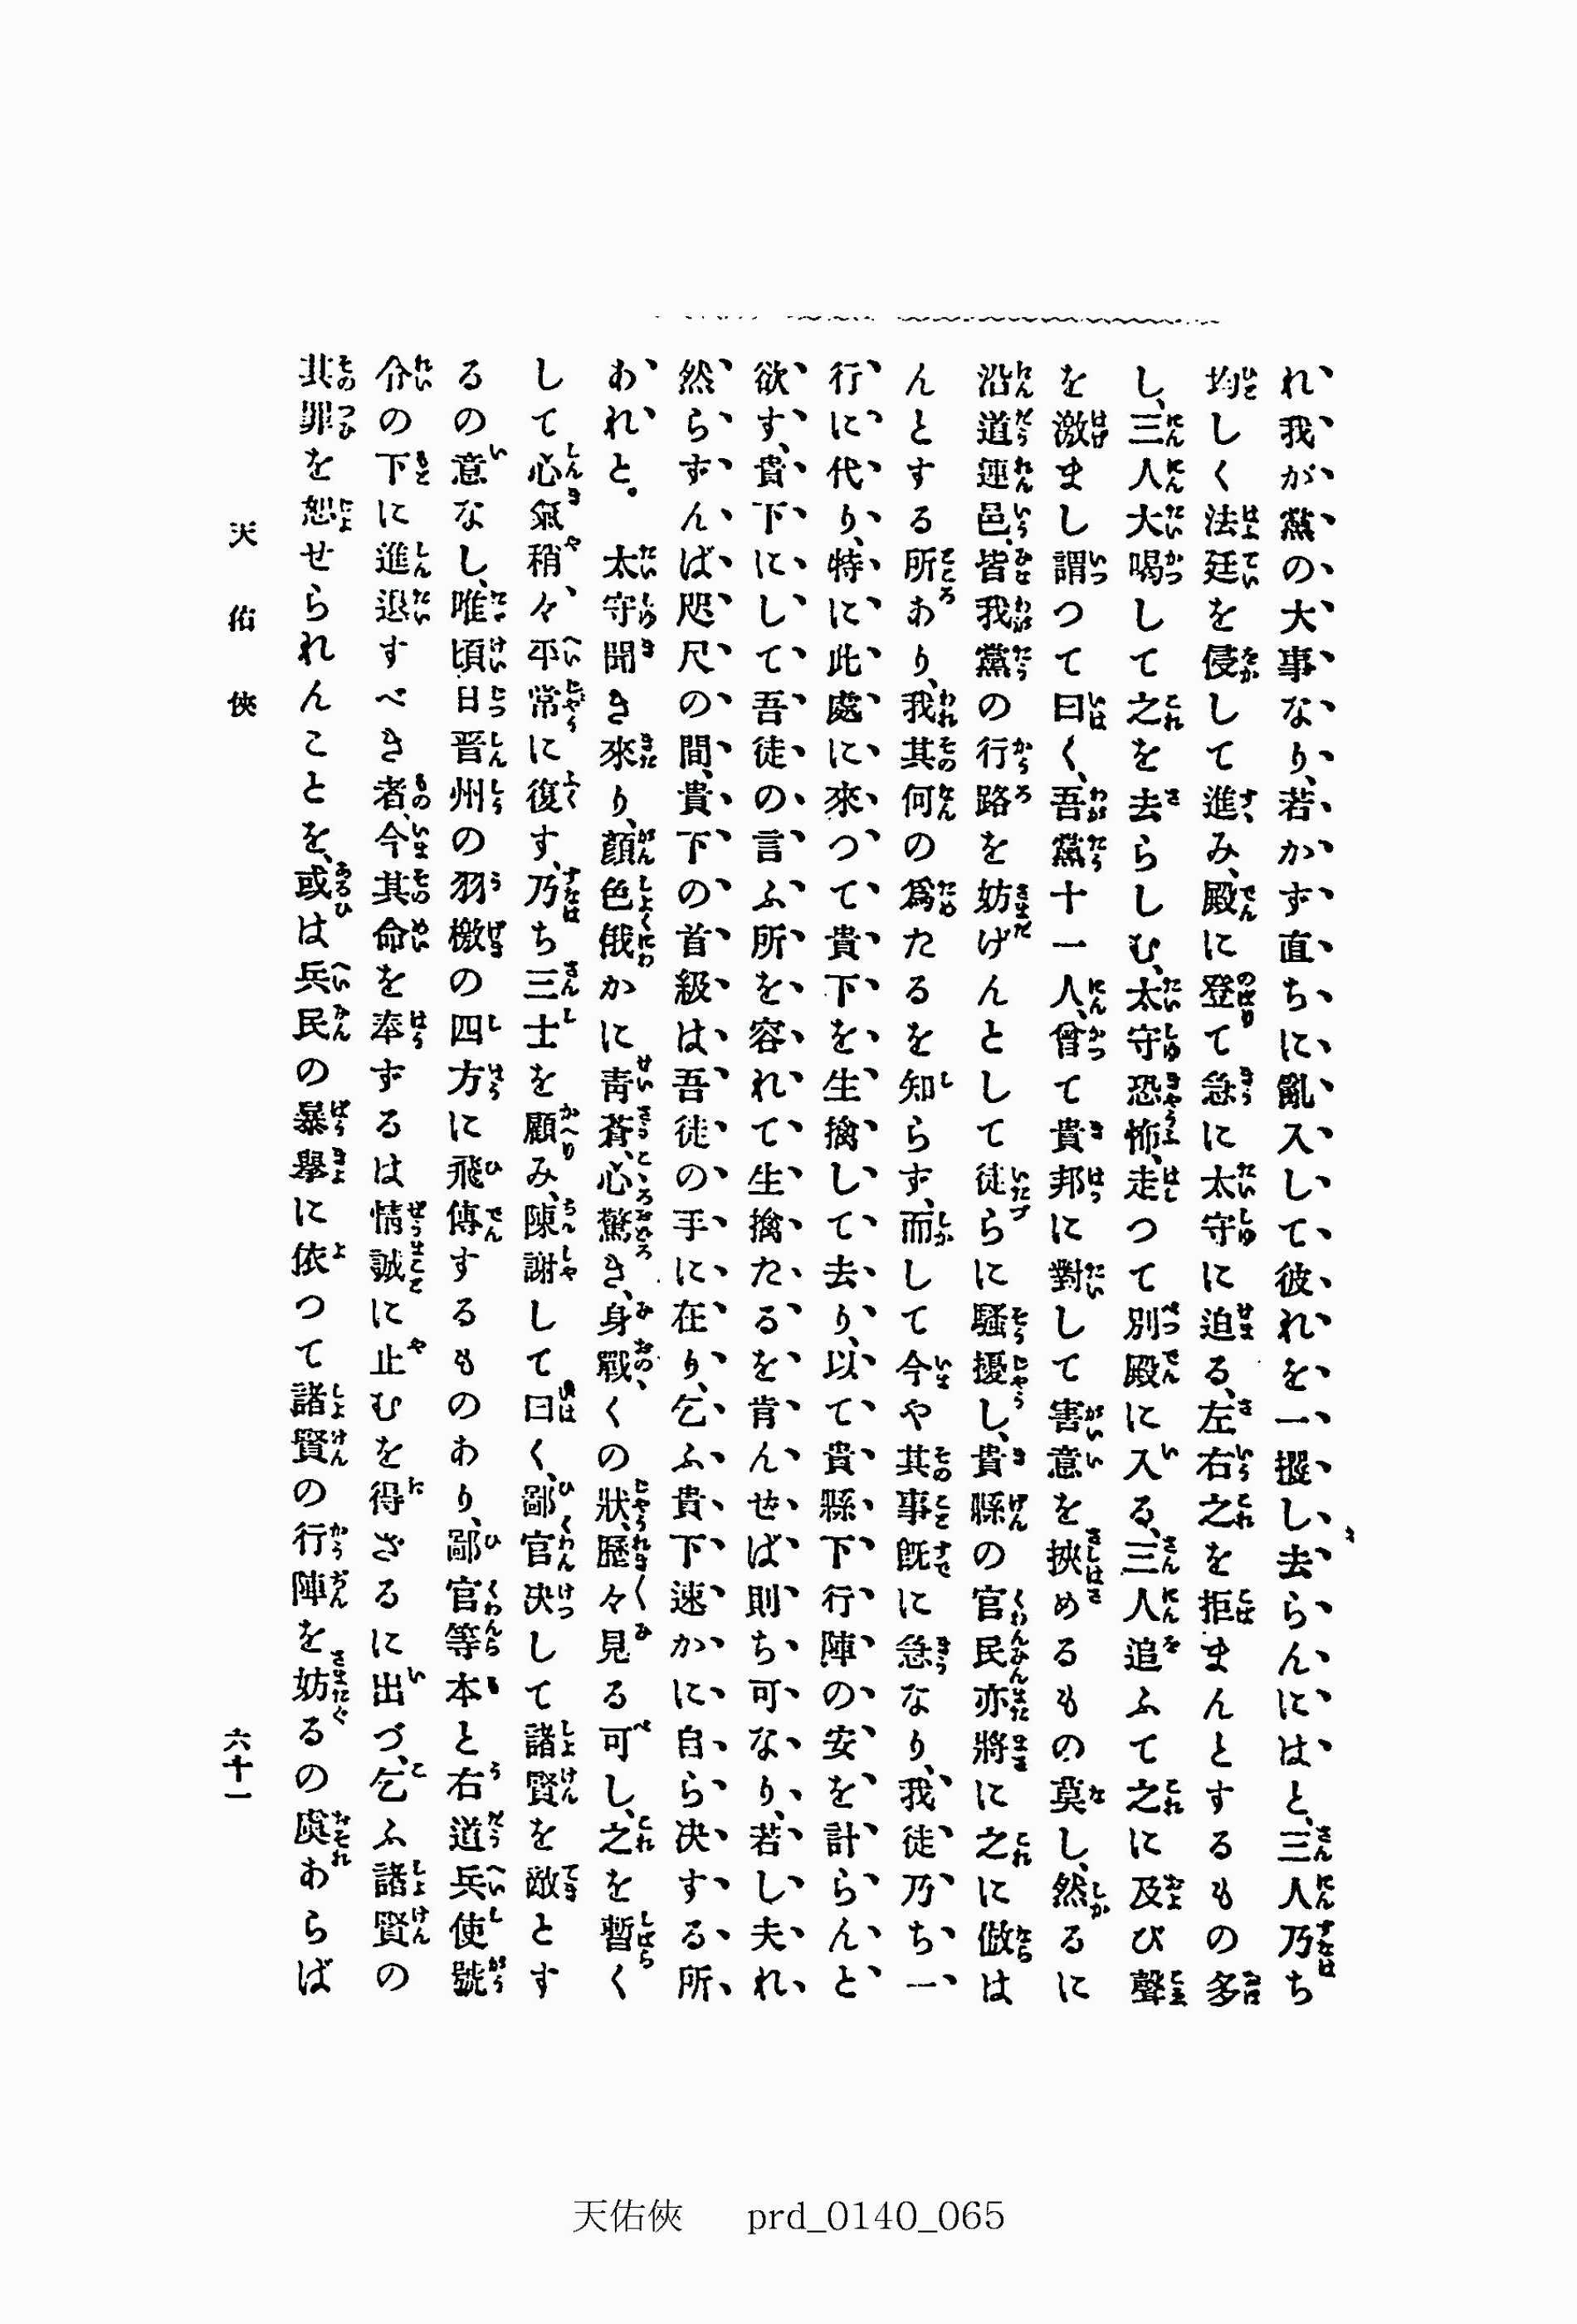 れ我が黨の大事なり、若かず直ちに亂入して彼れを一攫し去らんにはと、三人乃ち
均しく法廷を侵して進み、殿に登て急に太守に迫る、左右之を拒まんとするもの多
し、三人大喝して之を去らしむ、太守恐怖、走つて別殿に入る、三人追ふて之に及び聲
を激まし謂つて曰く、吾黨十一人、曾て貴邦に對して害意を挾めるもの莫し、然るに
沿道連邑、皆我黨の行路を妨げんとして徒らに騷擾し、貴縣の官民亦將に之に倣は
んとする所あり、我其何の爲たるを知らず、而して今や其事既に急なり、我徒乃ち一
行に代り、特に此處に來つて貴下を生擒して去り、以て貴縣下行陣の安を計らんと
欲す、貴下にして吾徒の言ふ所を容れて生擒たるを肯んせば則ち可なり、若し夫れ
然らずんば咫尺の間、貴下の首級は吾徒の手に在り、乞ふ貴下速かに自ら决する所
あれと。太守聞き來り、顏色俄かに靑蒼、心驚き、身戰くの狀、歷々見る可し、之を暫く
して心氣稍々平常に復す、乃ち三士を顧み、陳謝して曰く、鄙官决して諸賢を敵とす
るの意なし、唯頃日晋州の羽檄の四方に飛傳するものあり、鄙官等本と右道兵使號
令の下に進退すべき者、今其命を奉ずるは情誠に止むを得ざるに出づ、乞ふ諸賢の
其罪を恕せられんことを、或は兵民の暴擧に依つて諸賢の行陣を妨るの虞あらば
天佑俠
六十一
天佑俠 prd_0140_065